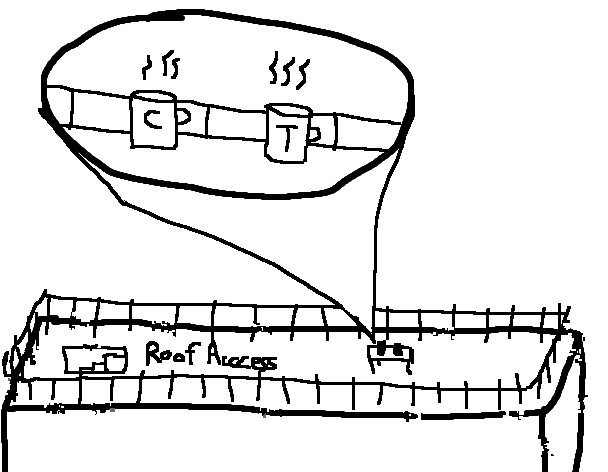 C T
Roof Access